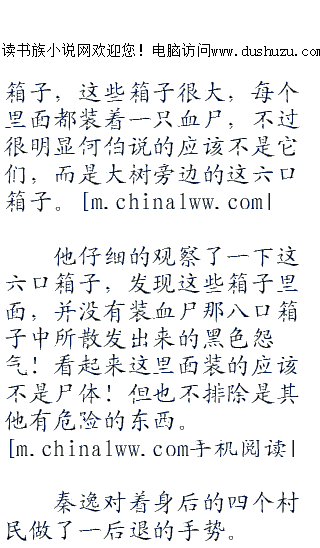 读书族小说网欢迎您！电脑访问www.dushuzu.com
箱子，这些箱子很大，每个
里面都装着一只血尸，不过
很明显何伯说的应该不是它
们，而是大树旁边的这六口
箱子。[m.china1ww.com|
他仔细的观察了一下这
六口箱子，发现这些箱子里
面，并没有装血尸那八口箱
子中所散发出来的黑色怨
气！看起来这里面装的应该
不是尸体！但也不排除是其
他有危险的东西。
[m.china1ww.com手机阅读|
秦逸对着身后的四个村
民做了一后退的手势。